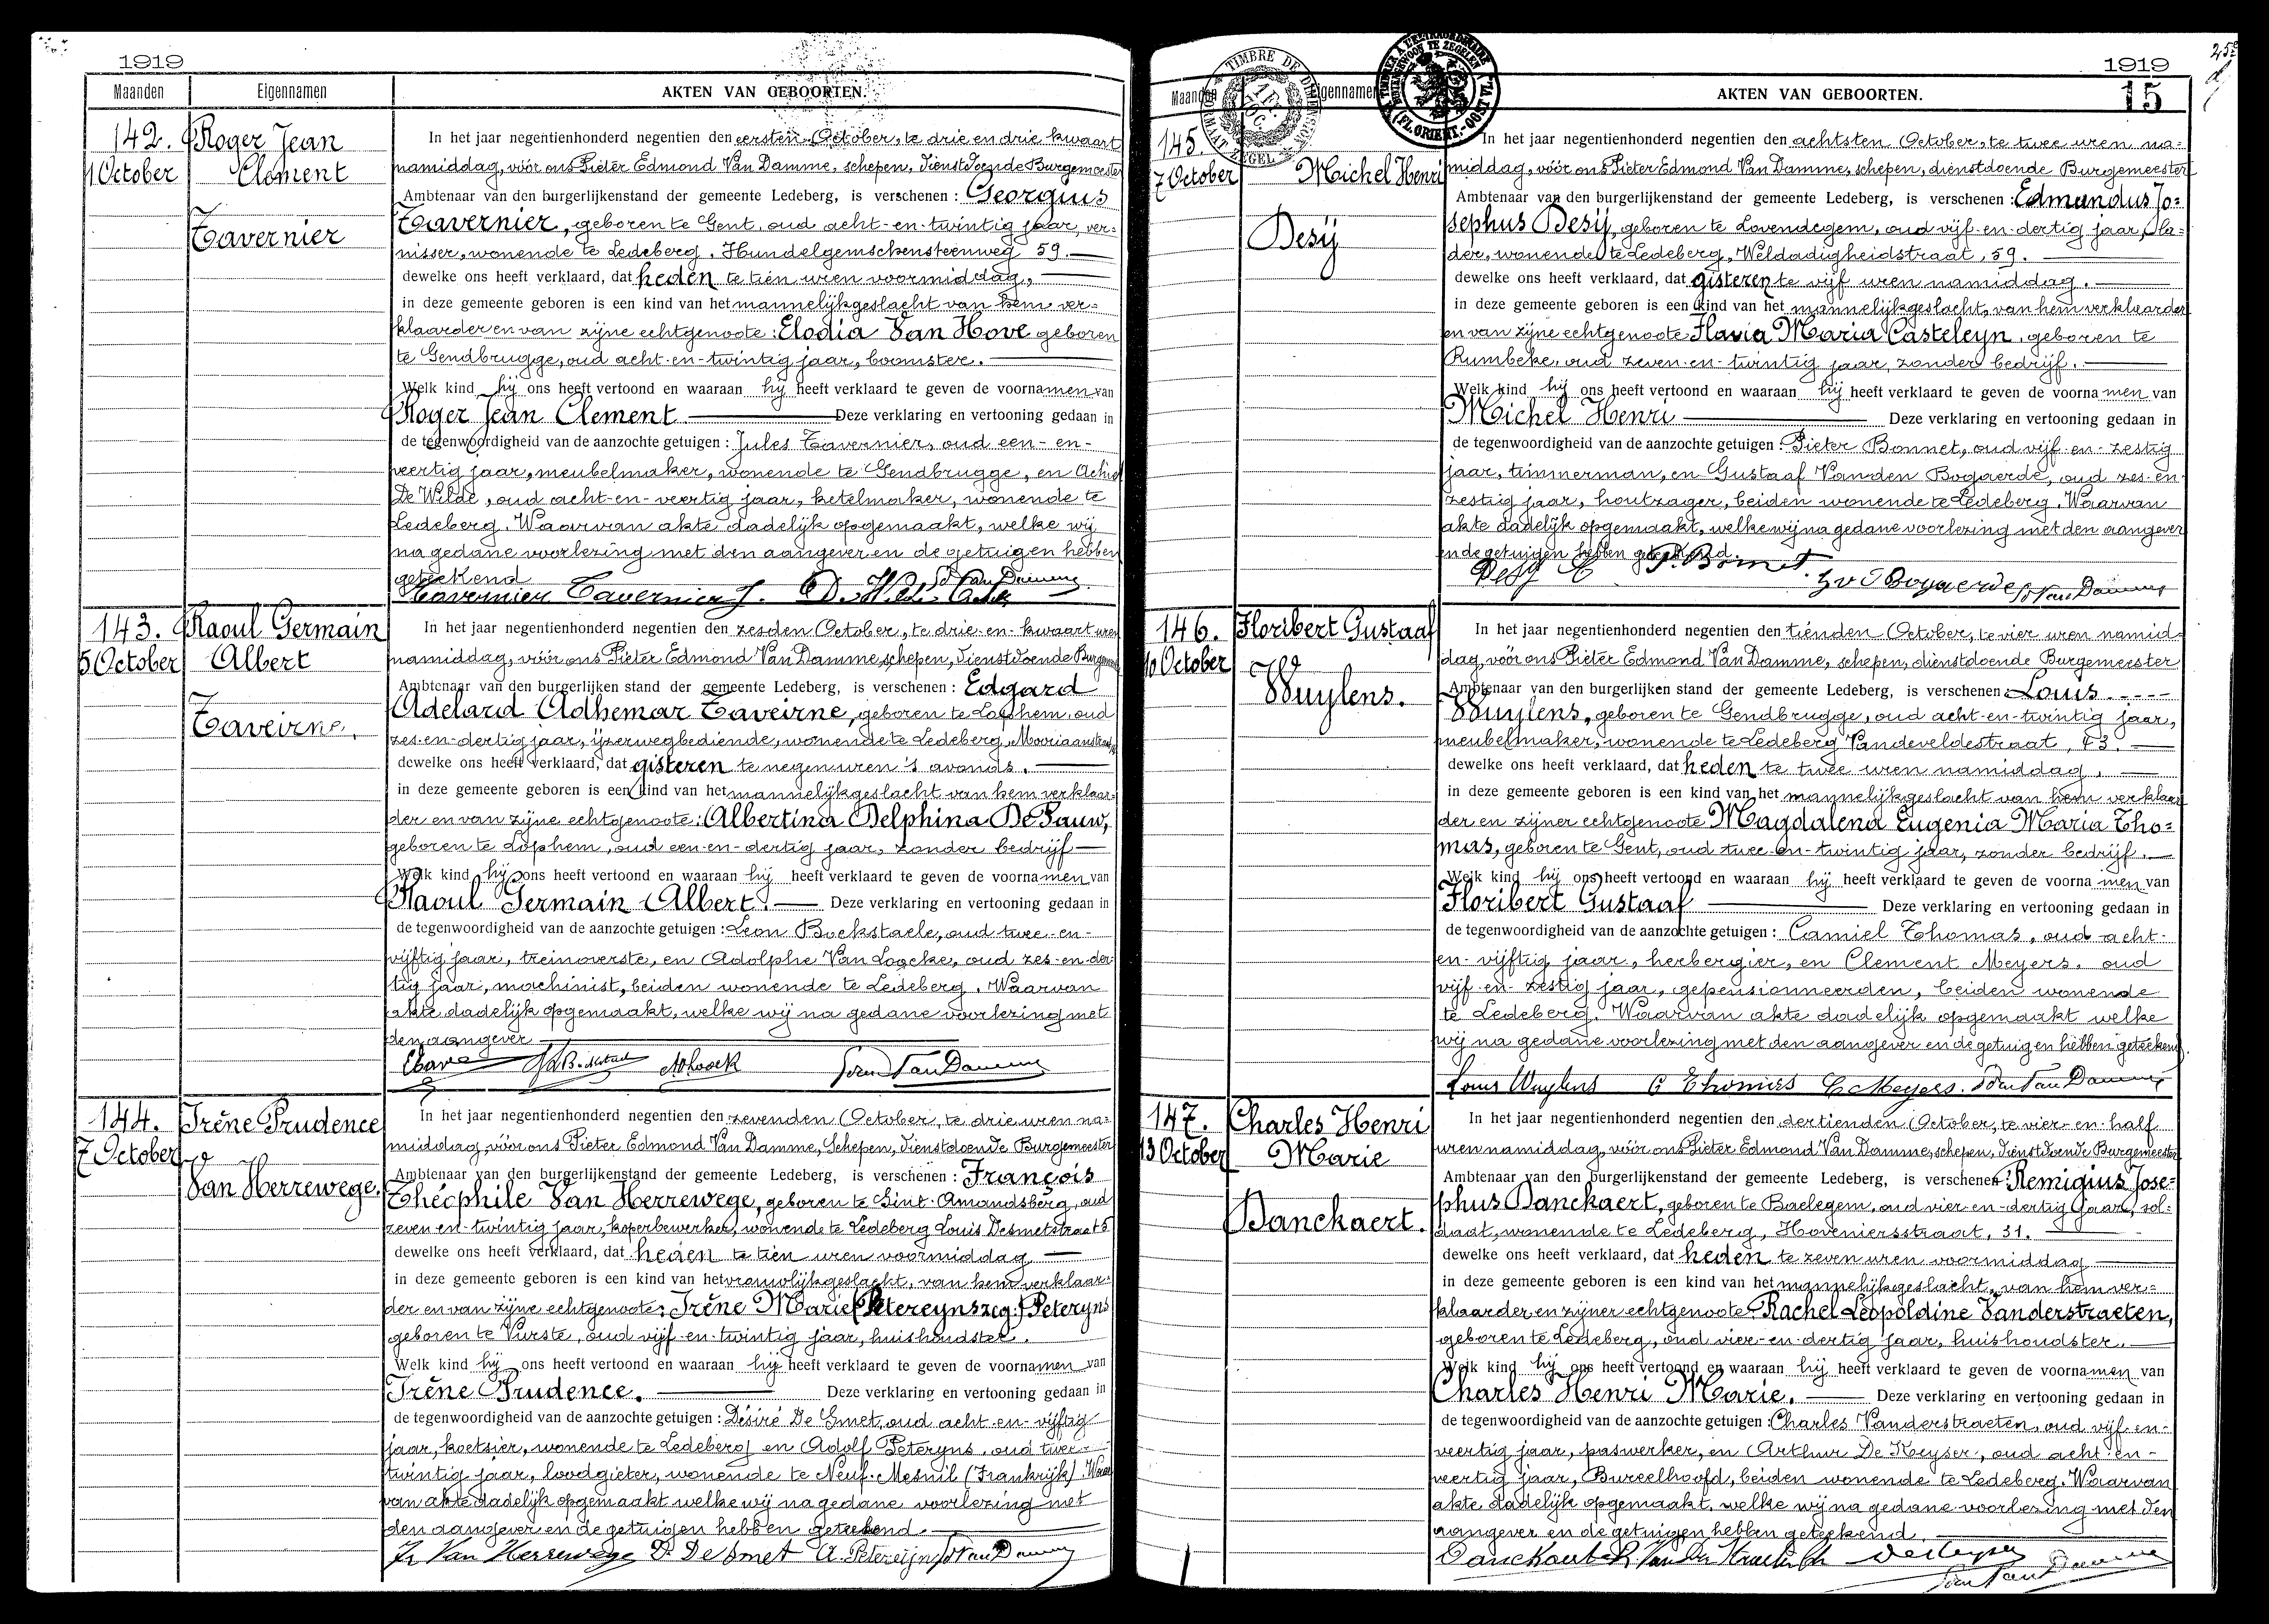 1919
Maanden
Eigennamen
AKTEN VAN GEBOORTEN.
142.
1 October
Roger Jean
Clement
Tavernier
In het jaar negentienhonderd negentien den eersten October, te drie en drie kwaart
namiddag, vóór ons Pieter Edmond Van Damme, schepen, dienstdoende Burgemeester
Ambtenaar van den burgerlijkenstand der gemeente Ledeberg, is verschenen : Georgius
Tavernier, geboren te Gent, oud acht-en-twintig jaar, ver=
nisser, wonende te Ledeberg, Hundelgemschensteenweg 59.
dewelke ons heeft verklaard, dat heden te tien uren voormiddag,
in deze gemeente geboren is een kind van het mannelijkgeslacht van hem ver=
klaarder en van zijne echtgenoote : Elodia Van Hove geboren
te Gendbrugge, oud acht-en-twintig jaar, boomster.
Welk kind hij ons heeft vertoond en waaraan hij heeft verklaard te geven de voornamen van
Roger Jean Clement Deze verklaring en vertooning gedaan in
de tegenwoordigheid van de aanzochte getuigen : Jules Tavernier, oud een-en-
veertig jaar, meubelmaker, wonende te Gendbrugge, en Achiel
De Wilde, oud acht-en-veertig jaar, ketelmaker, wonende te
Ledeberg. Waarvan akte dadelijk opgemaakt, welke wij
na gedane voorlezing met den aangever en de getuigen hebben
geteekend
Tavernier Tavernier J. Van Damme
143.
5 October
Raoul Germain
Albert
Taveirne.
In het jaar negentienhonderd negentien den zesden October, te drie-en-kwaart uren
namiddag, vóór ons Pieter Edmond Van Damme, schepen, dienstdoende Burgemeester
Ambtenaar van den burgerlijken stand der gemeente Ledeberg, is verschenen : Edgard
Adelard Adhemar Taveirne, geboren te Lophem, oud
zes-en-dertig jaar, ijzerwegbediende, wonende te Ledeberg, Mooriaanstraat
dewelke ons heeft verklaard, dat gisteren te negen uren 's avonds.
in deze gemeente geboren is een kind van het mannelijkgeslacht van hem verklaar=
der en van zijne echtgenoote : Albertina Delphina De Pauw,
geboren te Lophem, oud een-en-dertig jaar, zonder bedrijf
Welk kind hij ons heeft vertoond en waaraan hij heeft verklaard te geven de voornamen van
Raoul Germain Albert. Deze verklaring en vertooning gedaan in
de tegenwoordigheid van de aanzochte getuigen : Leon Bockstaele, oud twee-en-
vijftig jaar, treinoverste, en Adolphe Van Loocke, oud zes-en-der=
tig jaar, machinist, beiden wonende te Ledeberg. Waarvan
akte dadelijk opgemaakt, welke wij na gedane voorlezing met
den aangever
Van Damme
144.
7 October
Irène Prudence
Van Herrewege.
In het jaar negentienhonderd negentien den zevenden October, te drie uren na=
middag, vóór ons Pieter Edmond Van Damme, Schepen, dienstdoende Burgemeester
Ambtenaar van den burgerlijkenstand der gemeente Ledeberg, is verschenen : François
Théophile Van Herrewege, geboren te Sint-Amandsberg, oud
zeven-en-twintig jaar, koperbewerker, wonende te Ledeberg Louis Desmetstraat 6
dewelke ons heeft verklaard, dat heden te tien uren voormiddag
in deze gemeente geboren is een kind van het vrouwlijkgeslacht, van hem verklaar=
der en van zijne echtgenoote : Irène Marie (Petereyns zeg:) Peteryns
geboren te Vurste, oud vijf-en-twintig jaar, huishoudster.
Welk kind hij ons heeft vertoond en waaraan hij heeft verklaard te geven de voornamen van
Irène Prudence. Deze verklaring en vertooning gedaan in
de tegenwoordigheid van de aanzochte getuigen : Désiré De Smet, oud acht-en-vijftig
jaar, koetsier, wonende te Ledeberg en Adolf Peteryns, oud twee-
twintig jaar, loodgieter, wonende te Neuf-Mesnil (Frankrijk). Waar
van akte dadelijk opgemaakt welke wij na gedane voorlezing met
den aangever en de getuigen hebben geteekend.
Fr Van Herrewege D. De Smet A. Petereijns Van Damme
1919
15
Maanden
Eigennamen
AKTEN VAN GEBOORTEN.
TIMBRE DE DIMENSION
FORMAAT ZEGEL
145.
7 October
Michel Henri
Desij
In het jaar negentienhonderd negentien den achtsten October, te twee uren na=
middag, vóór ons Pieter Edmond Van Damme, schepen, dienstdoende Burgemeester
Ambtenaar van den burgerlijkenstand der gemeente Ledeberg, is verschenen : Edmundus Jo=
sephus Desij, geboren te Lovendegem, oud vijf-en-dertig jaar, la=
der, wonende te Ledeberg, Weldadigheidstraat, 59.
dewelke ons heeft verklaard, dat gisteren te vijf uren namiddag.
in deze gemeente geboren is een kind van het mannelijkgeslacht, van hem verklaarder
en van zijne echtgenoote : Flavia Maria Casteleyn, geboren te
Rumbeke, oud zeven-en-twintig jaar, zonder bedrijf.
Welk kind hij ons heeft vertoond en waaraan hij heeft verklaard te geven de voornamen van
Michel Henri Deze verklaring en vertooning gedaan in
de tegenwoordigheid van de aanzochte getuigen : Pieter Bonnet, oud vijf-en-zestig
jaar, timmerman, en Gustaaf Vanden Bogaerde, oud zes-en-
zestig jaar, houtzager, beiden wonende te Ledeberg. Waarvan
akte dadelijk opgemaakt, welke wij na gedane voorlezing met den aangever
en de getuigen hebben geteekend.
Desij E P. Bonnet. G v d Bogaerde Van Damme
146.
10 October
Floribert Gustaaf
Wuylens.
In het jaar negentienhonderd negentien den tienden October, te vier uren namid=
dag, vóór ons Pieter Edmond Van Damme, schepen, dienstdoende Burgemeester
Ambtenaar van den burgerlijken stand der gemeente Ledeberg, is verschenen : Louis
Wuylens, geboren te Gendbrugge, oud acht-en-twintig jaar,
meubelmaker, wonende te Ledeberg Vandeveldestraat, 43.
dewelke ons heeft verklaard, dat heden te twee uren namiddag.
in deze gemeente geboren is een kind van het mannelijkgeslacht van hem verklaar
der en zijner echtgenoote Magdalena Eugenia Maria Tho=
mas, geboren te Gent, oud twee-en-twintig jaar, zonder bedrijf.
Welk kind hij ons heeft vertoond en waaraan hij heeft verklaard te geven de voornamen van
Floribert Gustaaf Deze verklaring en vertooning gedaan in
de tegenwoordigheid van de aanzochte getuigen : Camiel Thomas, oud acht-
en-vijftig jaar, herbergier, en Clement Meyers, oud
vijf-en-zestig jaar, gepensionneerden, beiden wonende
te Ledeberg. Waarvan akte dadelijk opgemaakt welke
wij na gedane voorlezing met den aangever en de getuigen hebben geteekend.
Louis Wuylens C Thomas C. Meyers. Van Damme
147.
13 October
Charles Henri
Marie
Danckaert.
In het jaar negentienhonderd negentien den dertienden October, te vier-en-half
uren namiddag, vóór ons Pieter Edmond Van Damme, schepen, dienstdoende Burgemeester
Ambtenaar van den burgerlijkenstand der gemeente Ledeberg, is verschenen : Remigius Jose=
phus Danckaert, geboren te Baelegem, oud vier-en-dertig jaar, sol=
daat, wonende te Ledeberg, Hoveniersstraat, 31.
dewelke ons heeft verklaard, dat heden te zeven uren voormiddag
in deze gemeente geboren is een kind van het mannelijkgeslacht, van hem ver=
klaarder en zijner echtgenoote : Rachel Leopoldine Vanderstraeten,
geboren te Ledeberg, oud vier-en-dertig jaar, huishoudster.
Welk kind hij ons heeft vertoond en waaraan hij heeft verklaard te geven de voornamen van
Charles Henri Marie. Deze verklaring en vertooning gedaan in
de tegenwoordigheid van de aanzochte getuigen : Charles Vanderstraeten, oud vijf-en-
veertig jaar, paswerker, en Arthur De Keyser, oud acht-en-
veertig jaar, Bureelhoofd, beiden wonende te Ledeberg. Waarvan
akte dadelijk opgemaakt, welke wij na gedane voorlezing met den
aangever en de getuigen hebben geteekend.
Danckaert Van Damme